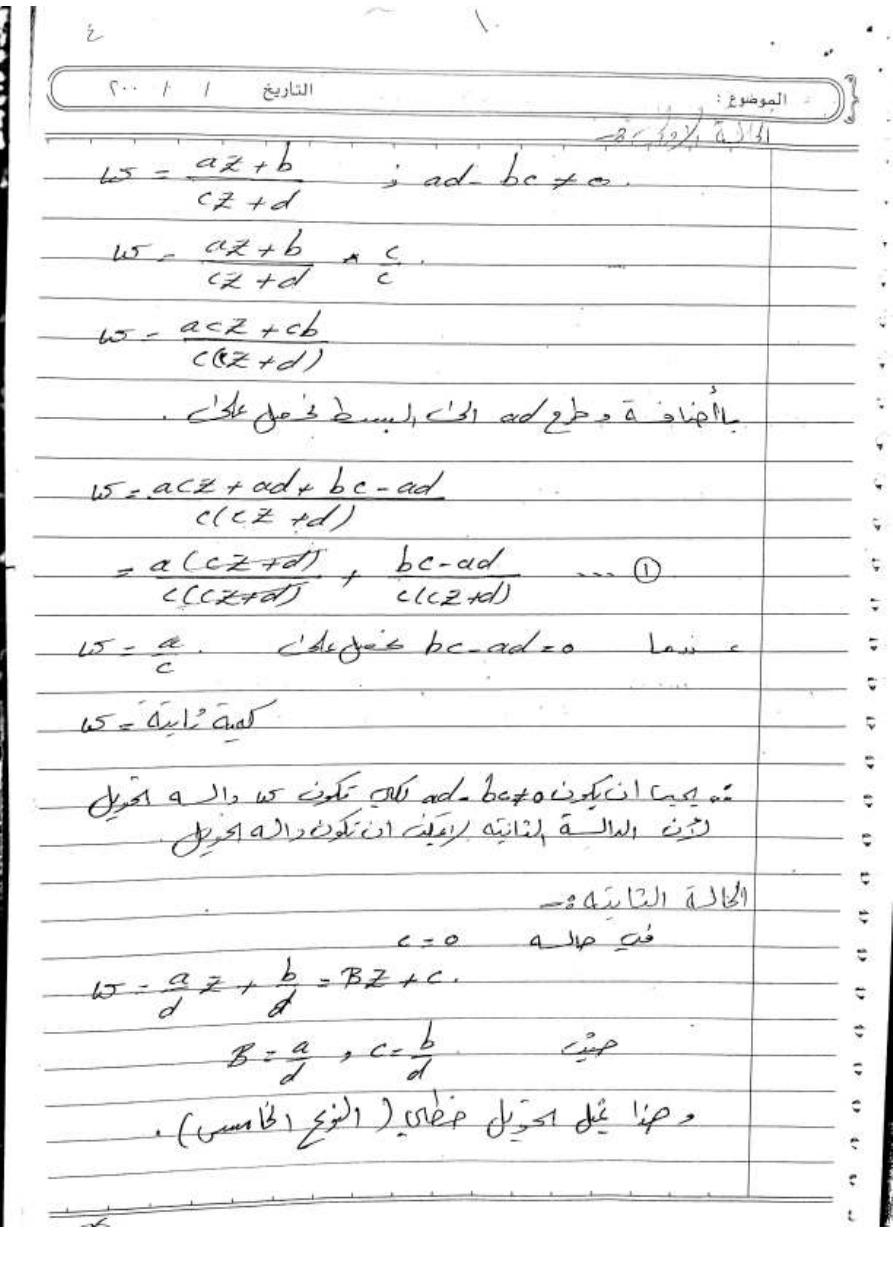 ١٠
٤
الموضوع : التاريخ / / ٢٠٠
الحالة الاولى :-
w = (az + b)/(cz + d) ; ad - bc ≠ 0.
w = (az + b)/(cz + d) * c/c.
w = (acz + cb)/(c(cz + d))
باأضافة وطرح ad الى البسط نحصل على .
w = (acz + ad + bc - ad)/(c(cz + d))
= a(cz + d)/(c(cz + d)) + (bc - ad)/(c(cz + d)) ... ①
عندما bc - ad = 0 نحصل على w = a/c .
w = كمية ثابتة
∴ يجب ان يكون ad - bc ≠ 0 لكي تكون w داله تحويل
لأن الدالة الثابته لايمكن ان تكون داله تحويل .
الحالة الثانيه :-
في حاله c = 0
w = a/d z + b/d = Bz + c.
حيث B = a/d , c = b/d
وهذا يمثل تحويل خطي ( النوع الخامس ) .